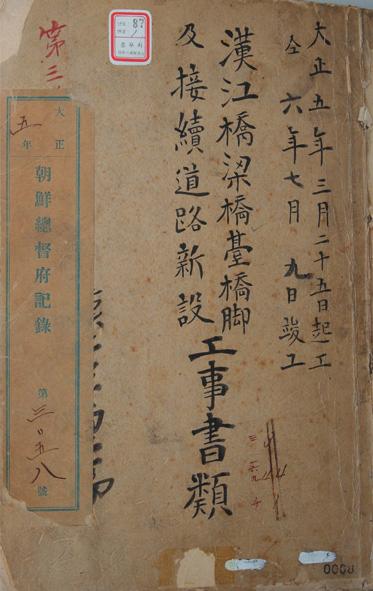 大正五年三月二十五日起工
仝六年七月九日竣工
漢江橋梁橋臺橋脚
及接續道路新設工事書類
第三
大正
五年
朝鮮總督府記錄
第三〇五八號
87
1
0008